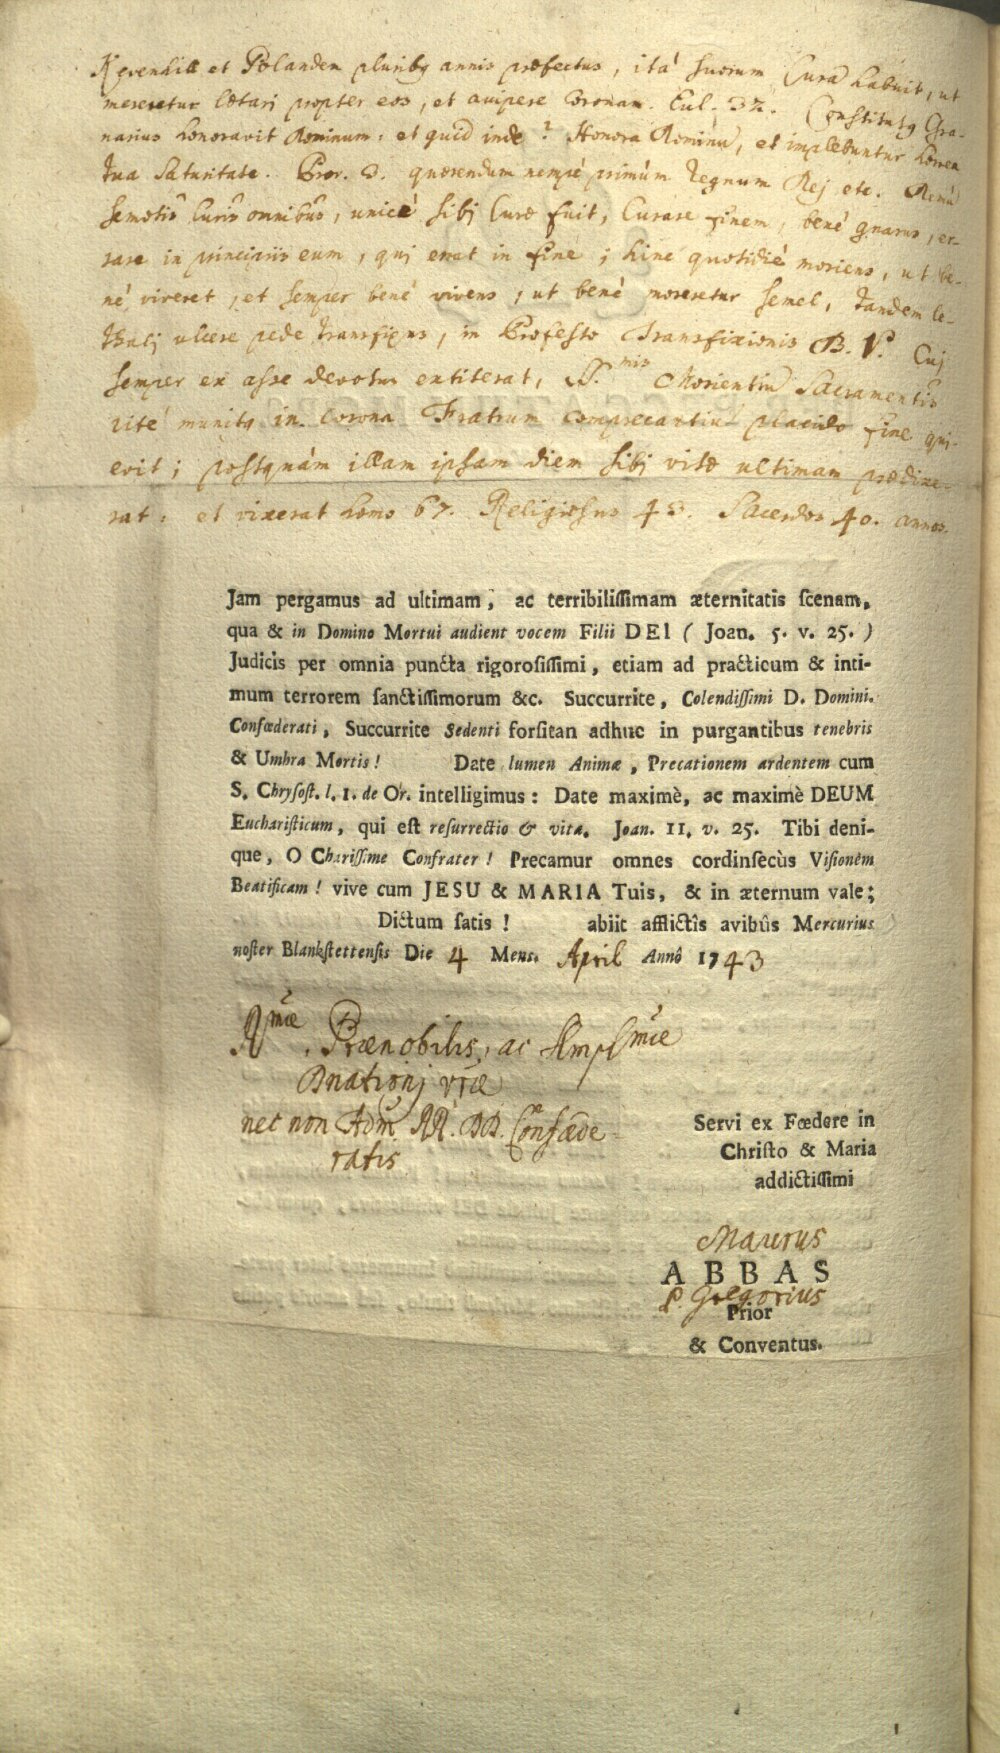 et Polanden pluribq annis præfectus, itá suorum Curã habuit, ut
mereretur lætari propter eos, et accipere Coronam. Eccl. 32. Constitutq Gra-
narius honoravit Dominum, et quid inde? Honora Dominũ, et implebuntur horrea
tua Saturitate. Prov. 3. quærendum nempé primùm regnum Dej etc.
semotis Curis omnibus, unicé sibj Curæ fuit, Curare finem, bené gnarus, er-
rare in principiis eum, quj errat in fine; hinc quotidié moriens, ut be-
né viveret, et semper bené vivens, ut bené moreretur semel, tandem le-
thalj ulcere pede transfixus, in Profesto Transfixionis B. V. Cuj
semper ex asse devotus extiterat, SS.mis Morientiũ Sacramentis
rité munitq in Corona Fratrum Comprecantiũ placido fine qui-
evit; postquàm illam ipsam diem sibj vitæ ultimam prædixe-
rat: et vixerat homo 67. Religiosus 43. Sacerdos 40. annos.
Jam pergamus ad ultimam, ac terribilissimam æternitatis scenam,
qua & in Domino Mortui audient vocem Filii DEI ( Joan. 5. v. 25. )
Judicis per omnia puncta rigorosissimi, etiam ad practicum & inti-
mum terrorem sanctissimorum &c. Succurrite, Colendissimi D. Domini.
Confœderati, Succurrite Sedenti forsitan adhuc in purgantibus tenebris
& Umbra Mortis! Date lumen Animæ, Precationem ardentem cum
S. Chrysost. l. 1. de Or. intelligimus: Date maximè, ac maximè DEUM
Eucharisticum, qui est resurrectio & vita. Joan. 11. v. 25. Tibi deni-
que, O Charissime Confrater! Precamur omnes cordinsecùs Visionèm
Beatificam! vive cum JESU & MARIA Tuis, & in æternum vale;
Dictum satis! abiit afflictîs avibûs Mercurius
noster Blankstettensis Die 4 Mens. April Annô 1743
Rmæ, Prænobilis, ac Amplmæ
Dnationj vræ
nec non Adm. RR. DD. Confæde
ratis
Servi ex Fœdere in
Christo & Maria
addictissimi
Maurus
ABBAS
P. Gregorius
Prior
& Conventus.